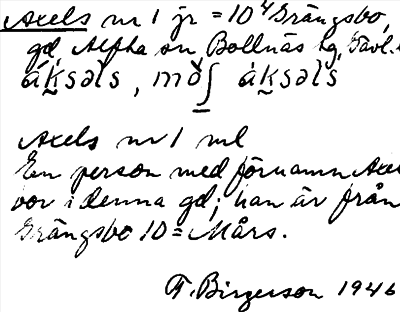 Axels nr 1 jr = 10⁴ Grängsbo,
gd, Alfta sn Bollnäs tg, Gävl.
áksəls, àksəls
Axels nr 1 ml
En person med förnamn Axe
bor i denna gd; han är från
Grängsbo 10 = Mårs.
T. Birgerson 1946